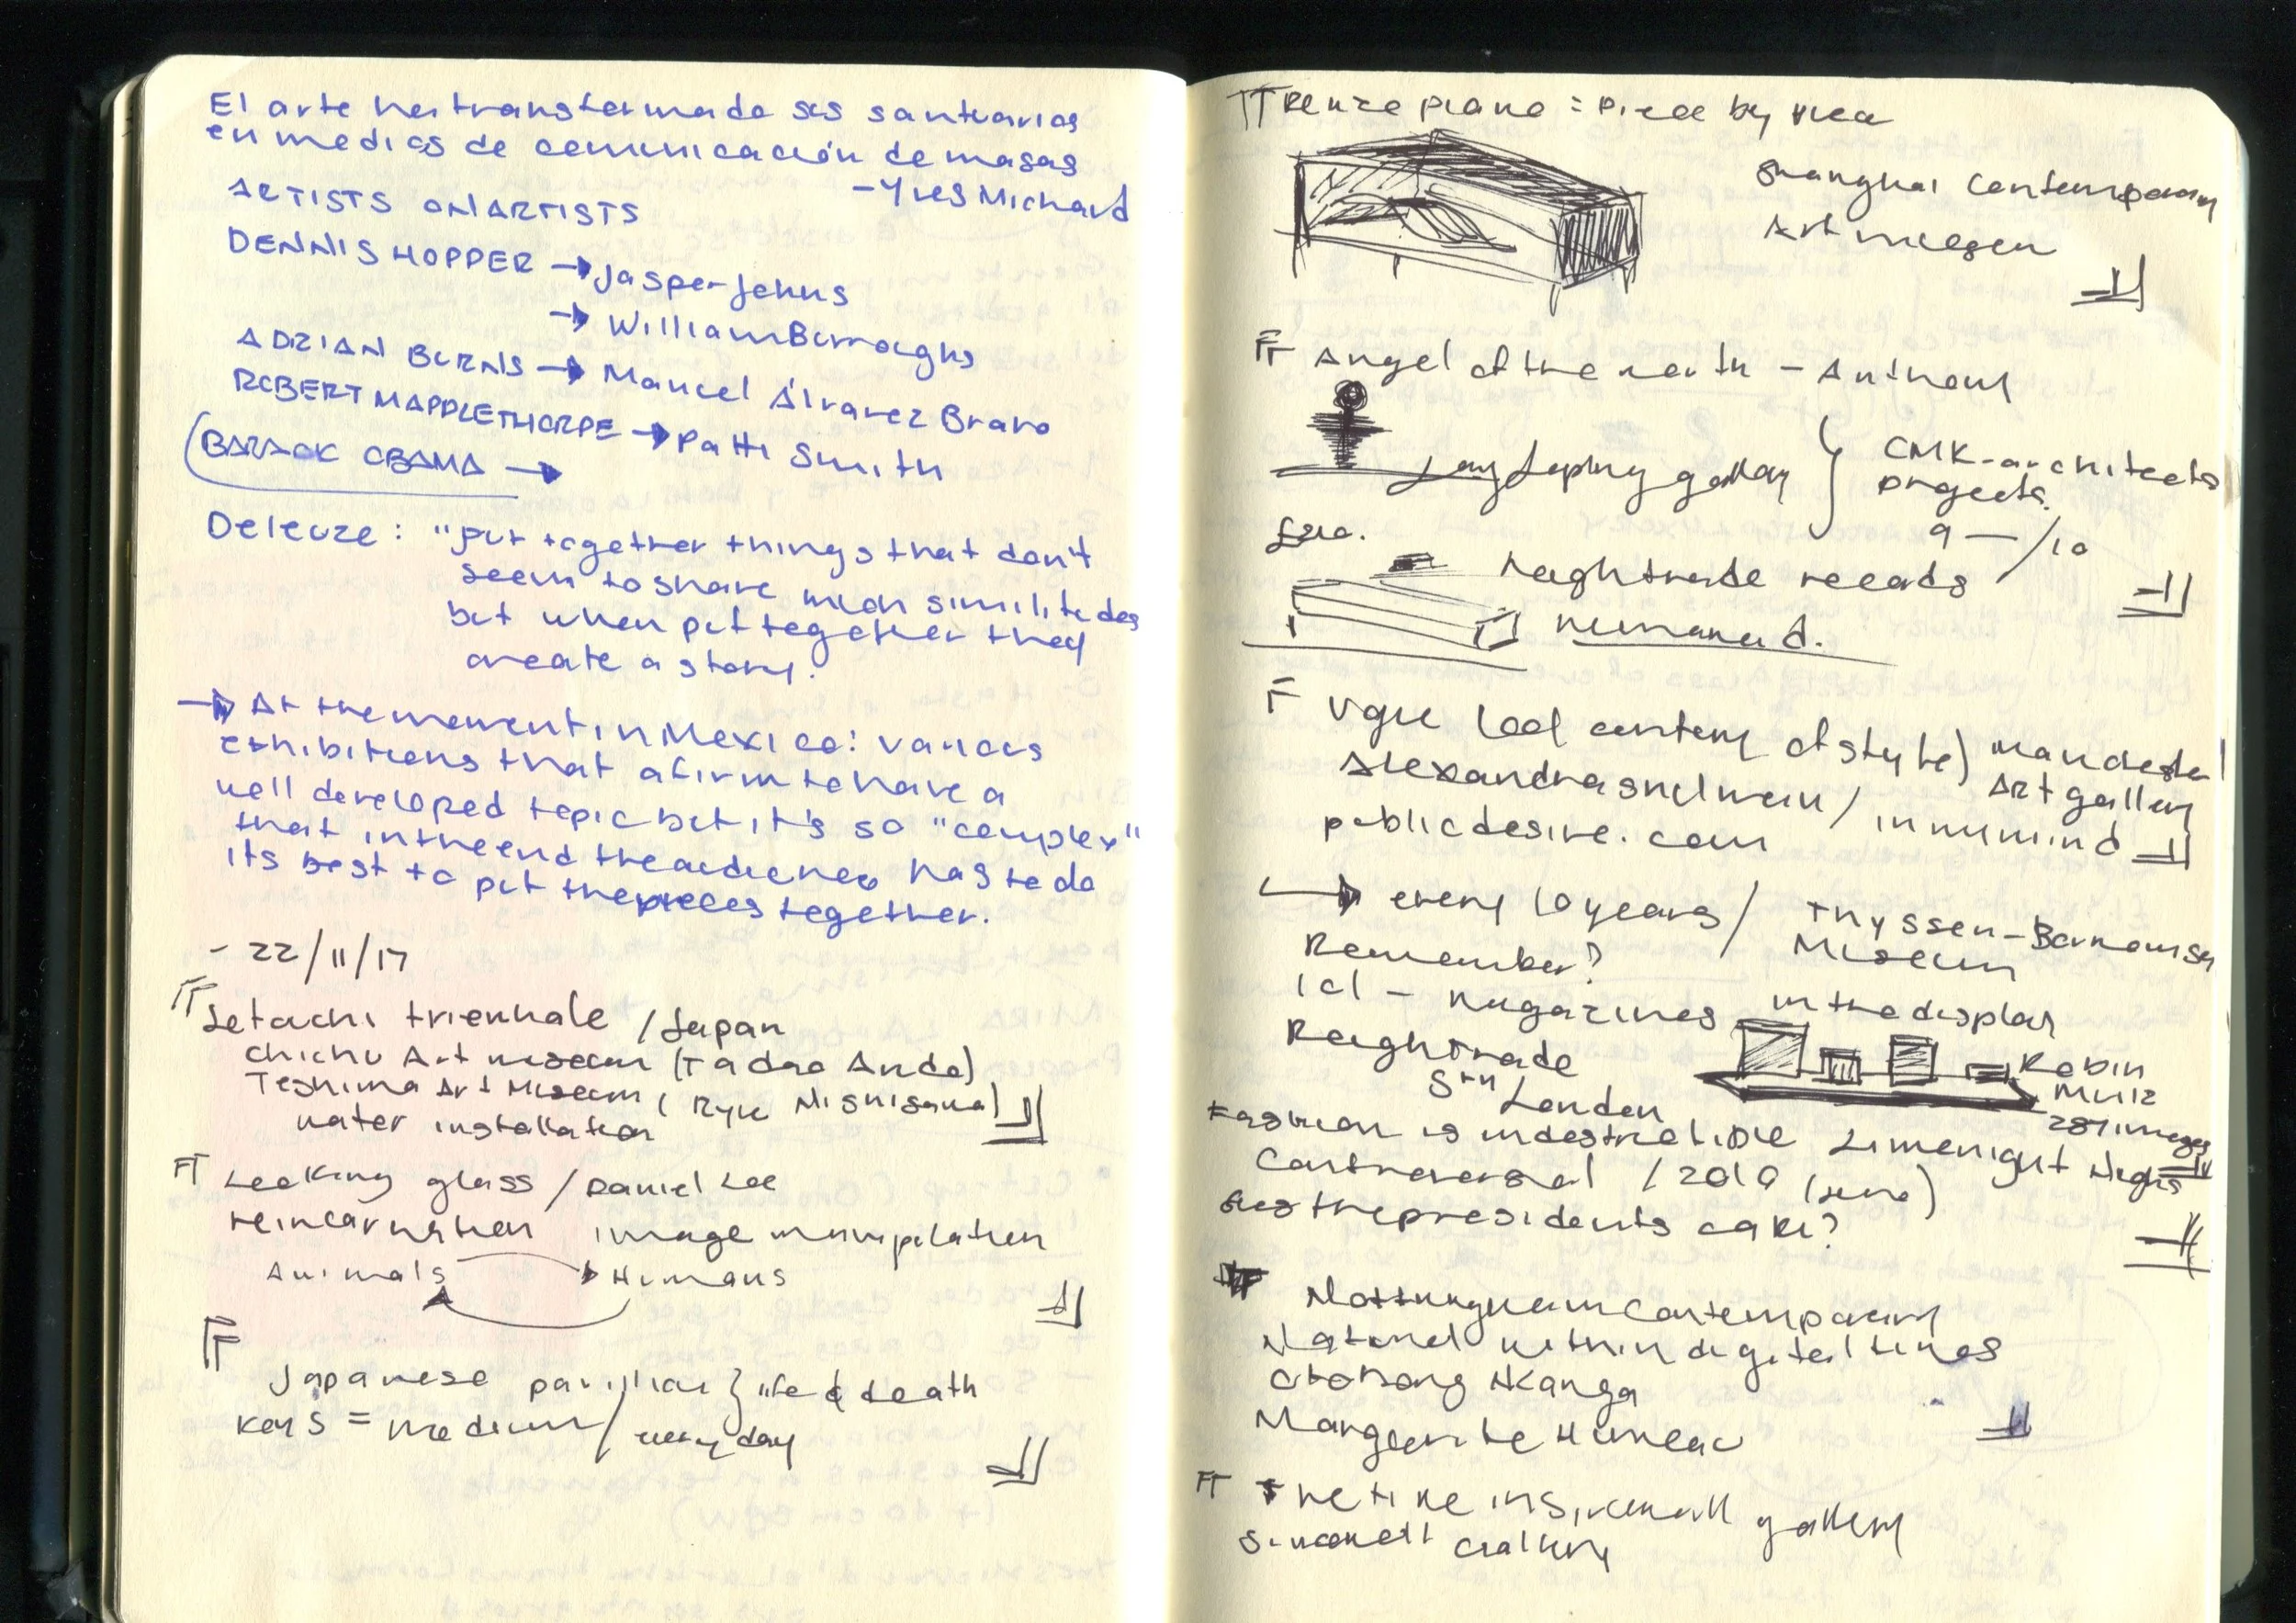 El arte ha transformado sus santuarios
en medios de comunicación de masas
- Yves Michard
ARTISTS ON ARTISTS
DENNIS HOPPER → Jasper Johns
→ William Burroughs
ADRIAN BURNS → Manuel Álvarez Bravo
ROBERT MAPPLETHORPE → Patti Smith
(BARACK OBAMA →
Deleuze: "put together things that don't
seem to share much similitudes
but when put together they
create a story.
→ At the moment in Mexico: various
exhibitions that afirm to have a
well developed topic but it's so "complex"
that in the end the audience has to do
its best to put the pieces together.
- 22/11/17
Setouchi triennale / Japan
Chichu Art museum (Tadao Ando)
Teshima Art Museum (Ryue Nishisawa)
water installation
Looking glass / Daniel Lee
reincarnation image manipulation
Animals → Humans
Japanese pavilion } life & death
keys = medium / every day
Renzo piano = Piece by piece
Shanghai Contemporary
Art museum
Angel of the north - Anthony
gallery } CMK-architects
projects.
9 — / 10
Roughtrade records
Vogue (100 century of style) Manchester
Art gallery
Alexandra Shulman / in my mind
publicdesire.com
→ every 10 years / Thyssen-Bornemisza
Remember? Museum
Id - magazines in the display
Roughtrade
Robin
Muir
London
287 images
Fashion is indestructible Limelight Nights
Controversial / 2010 (june)
presidents cake?
Nottingham Contemporary
Natural within digital times
Otobong Nkanga
Marguerite Humeau
The time is
gallery
gallery